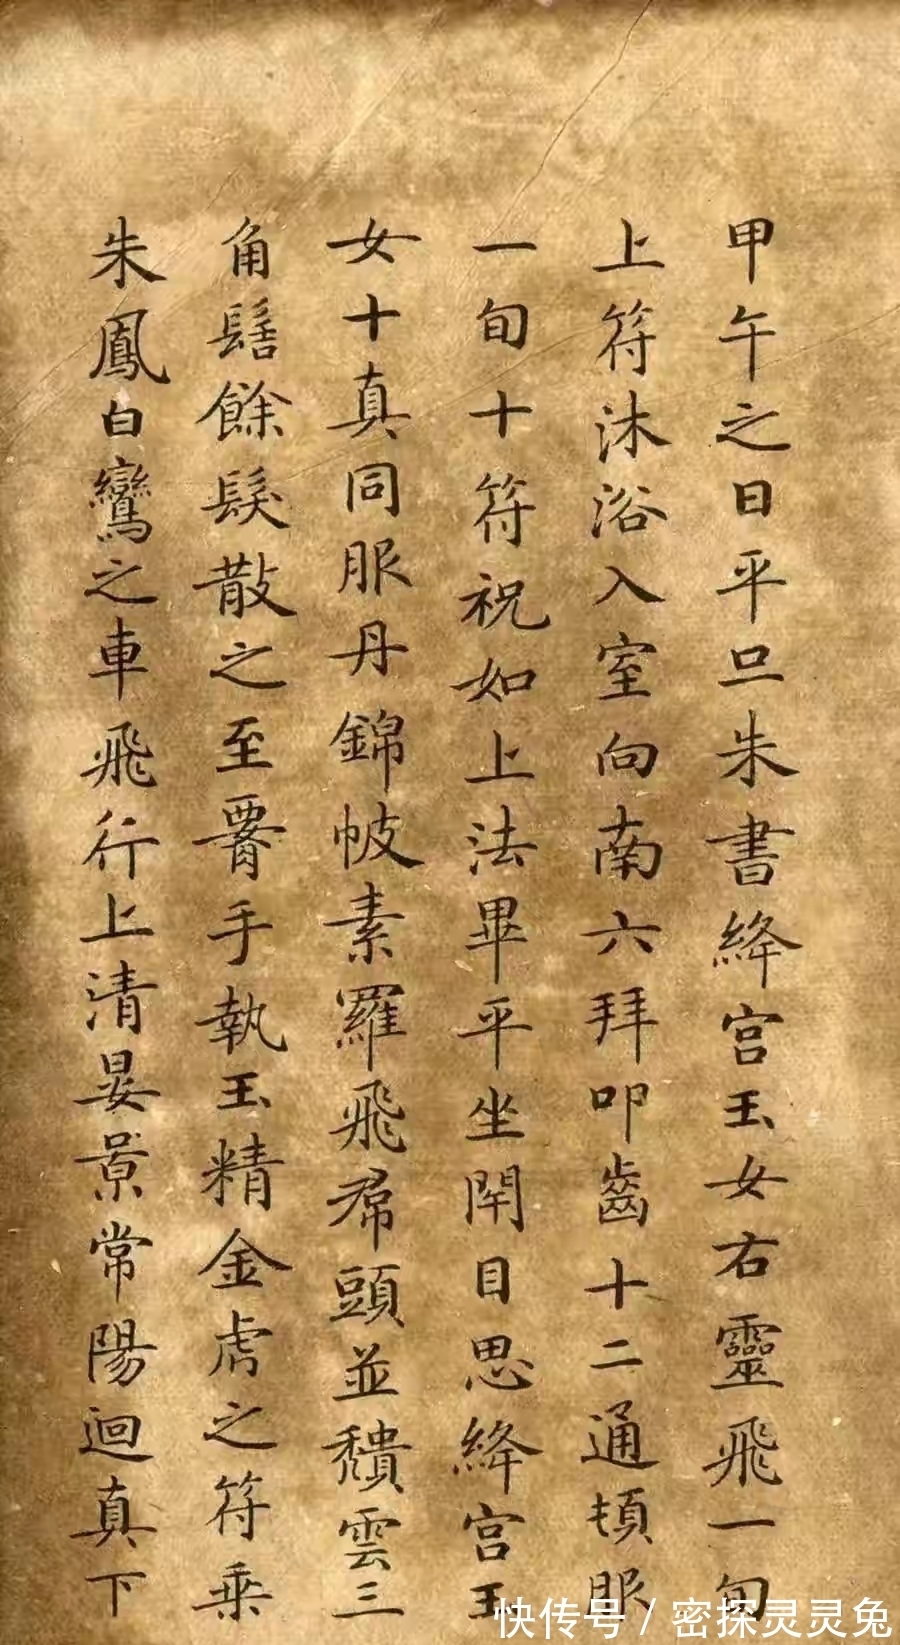 甲午之日平旦朱書絳宫玉女右靈飛一旬
上符沐浴入室向南六拜叩齒十二通頓服
一旬十符祝如上法畢平坐閇目思絳宫玉
女十真同服丹錦帔素羅飛帬頭並穨雲三
角髻餘髮散之至䙴手執玉精金虎之符乗
朱鳳白鸞之車飛行上清晏景常陽迴真下
快传号 / 密探灵灵兔